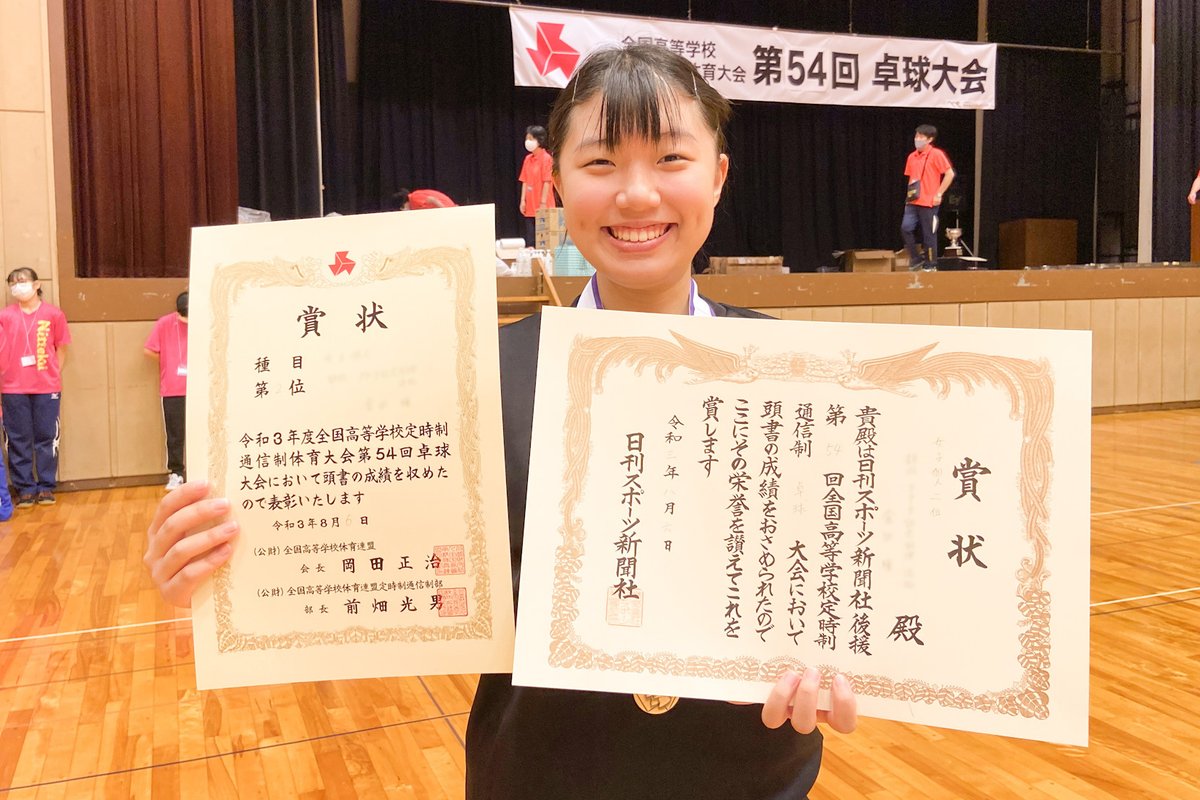 全国高等学校
育大会
第54回 卓球大会
Nittaku
賞 状
種 目
第 位
令和3年度全国高等学校定時制
通信制体育大会第54回卓球
大会において頭書の成績を収めた
ので表彰いたします
令和3年8月6日
(公財)全国高等学校体育連盟
会長 岡田正治
(公財)全国高等学校体育連盟定時制通信制部
部長 前畑光男
賞状
女子個人二位
殿
貴殿は日刊スポーツ新聞社後援
第54回全国高等学校定時制
通信制 卓球 大会において
頭書の成績をおさめられたので
ここにその栄誉を讃えてこれを
賞します
令和三年八月六日
日刊スポーツ新聞社